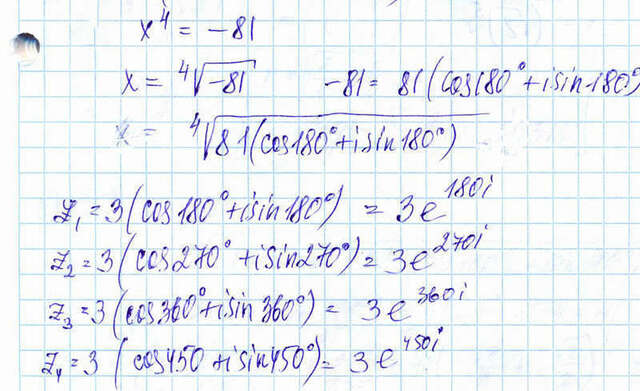 x⁴ = -81
x = ⁴√-81    -81 = 81(cos180° + i sin 180°)
x = ⁴√81(cos180° + i sin 180°)
z₁ = 3(cos180° + i sin 180°) = 3e^180i
z₂ = 3(cos270° + i sin 270°) = 3e^270i
z₃ = 3(cos360° + i sin 360°) = 3e^360i
z₄ = 3(cos450 + i sin 450°) = 3e^450i